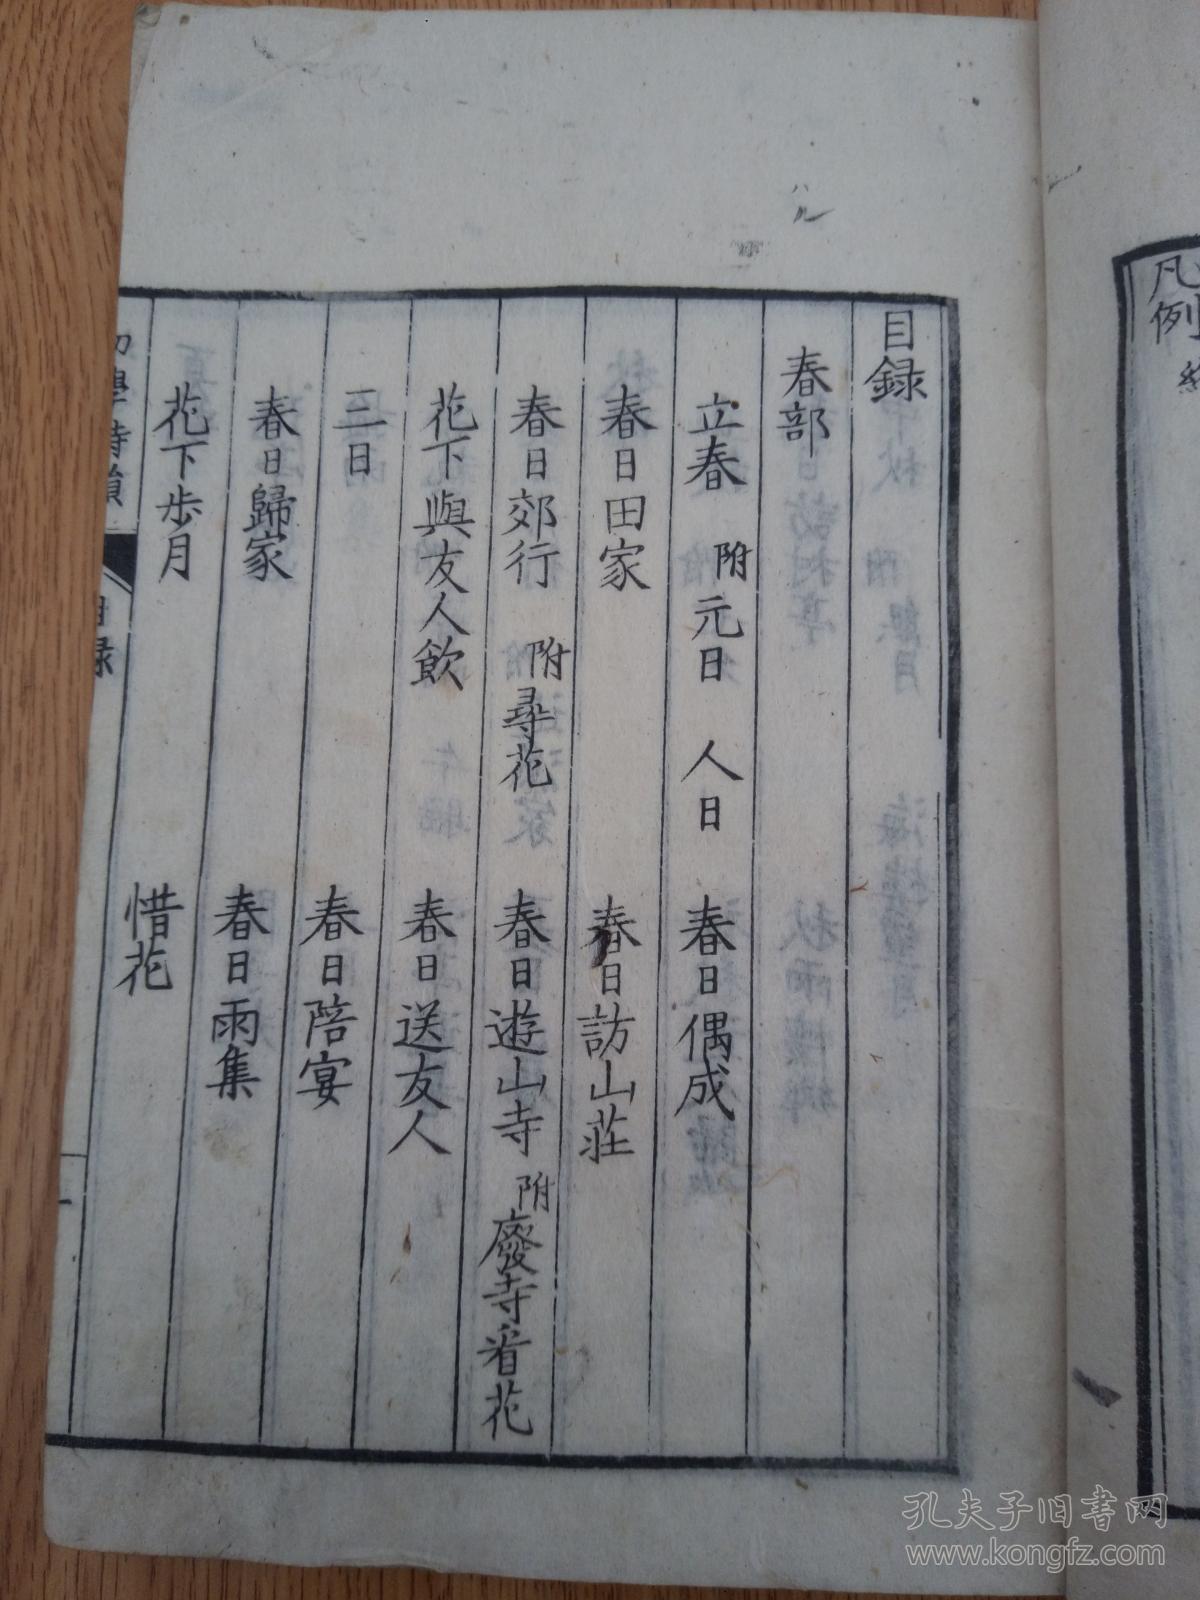 凡例
目録
春部
立春 附元日 人日 春日偶成
春日田家 春日訪山莊
春日郊行 附尋花 春日遊山寺 附廢寺看花
花下與友人飲 春日送友人
三日 春日陪宴
春日歸家 春日雨集
花下歩月 惜花
目録
孔夫子旧书网
www.kongfz.com